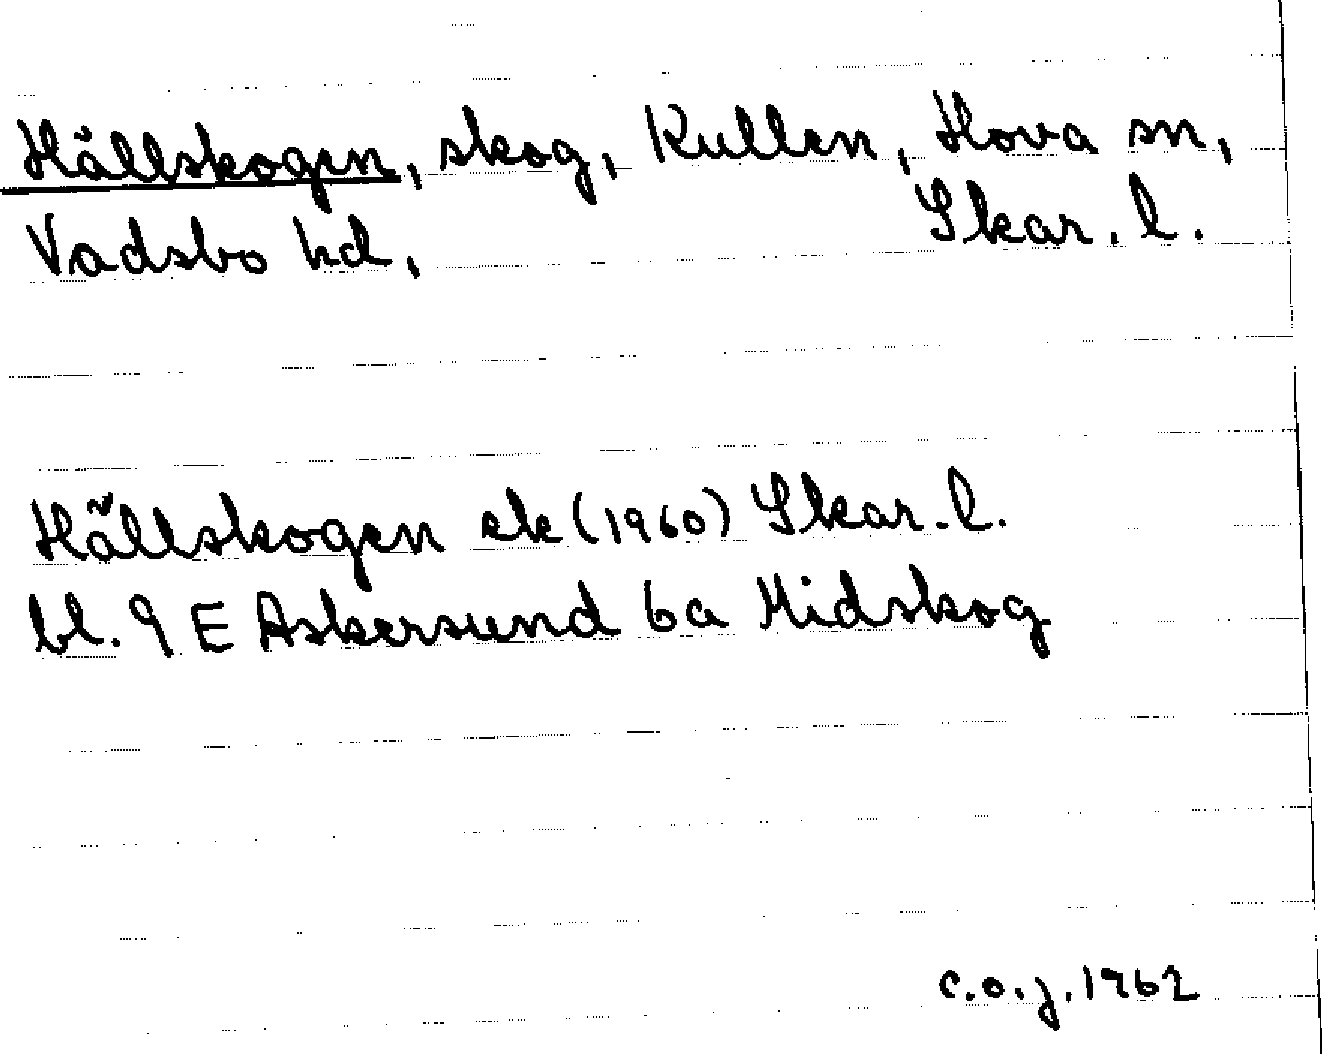 Hällskogen, skog, Kullen, Hova sn,
Vadsbo hd, Skar. l.
Hällskogen ek (1960) Skar. l.
bl. 9 E Askersund 6a Midskog
C.O.J. 1962